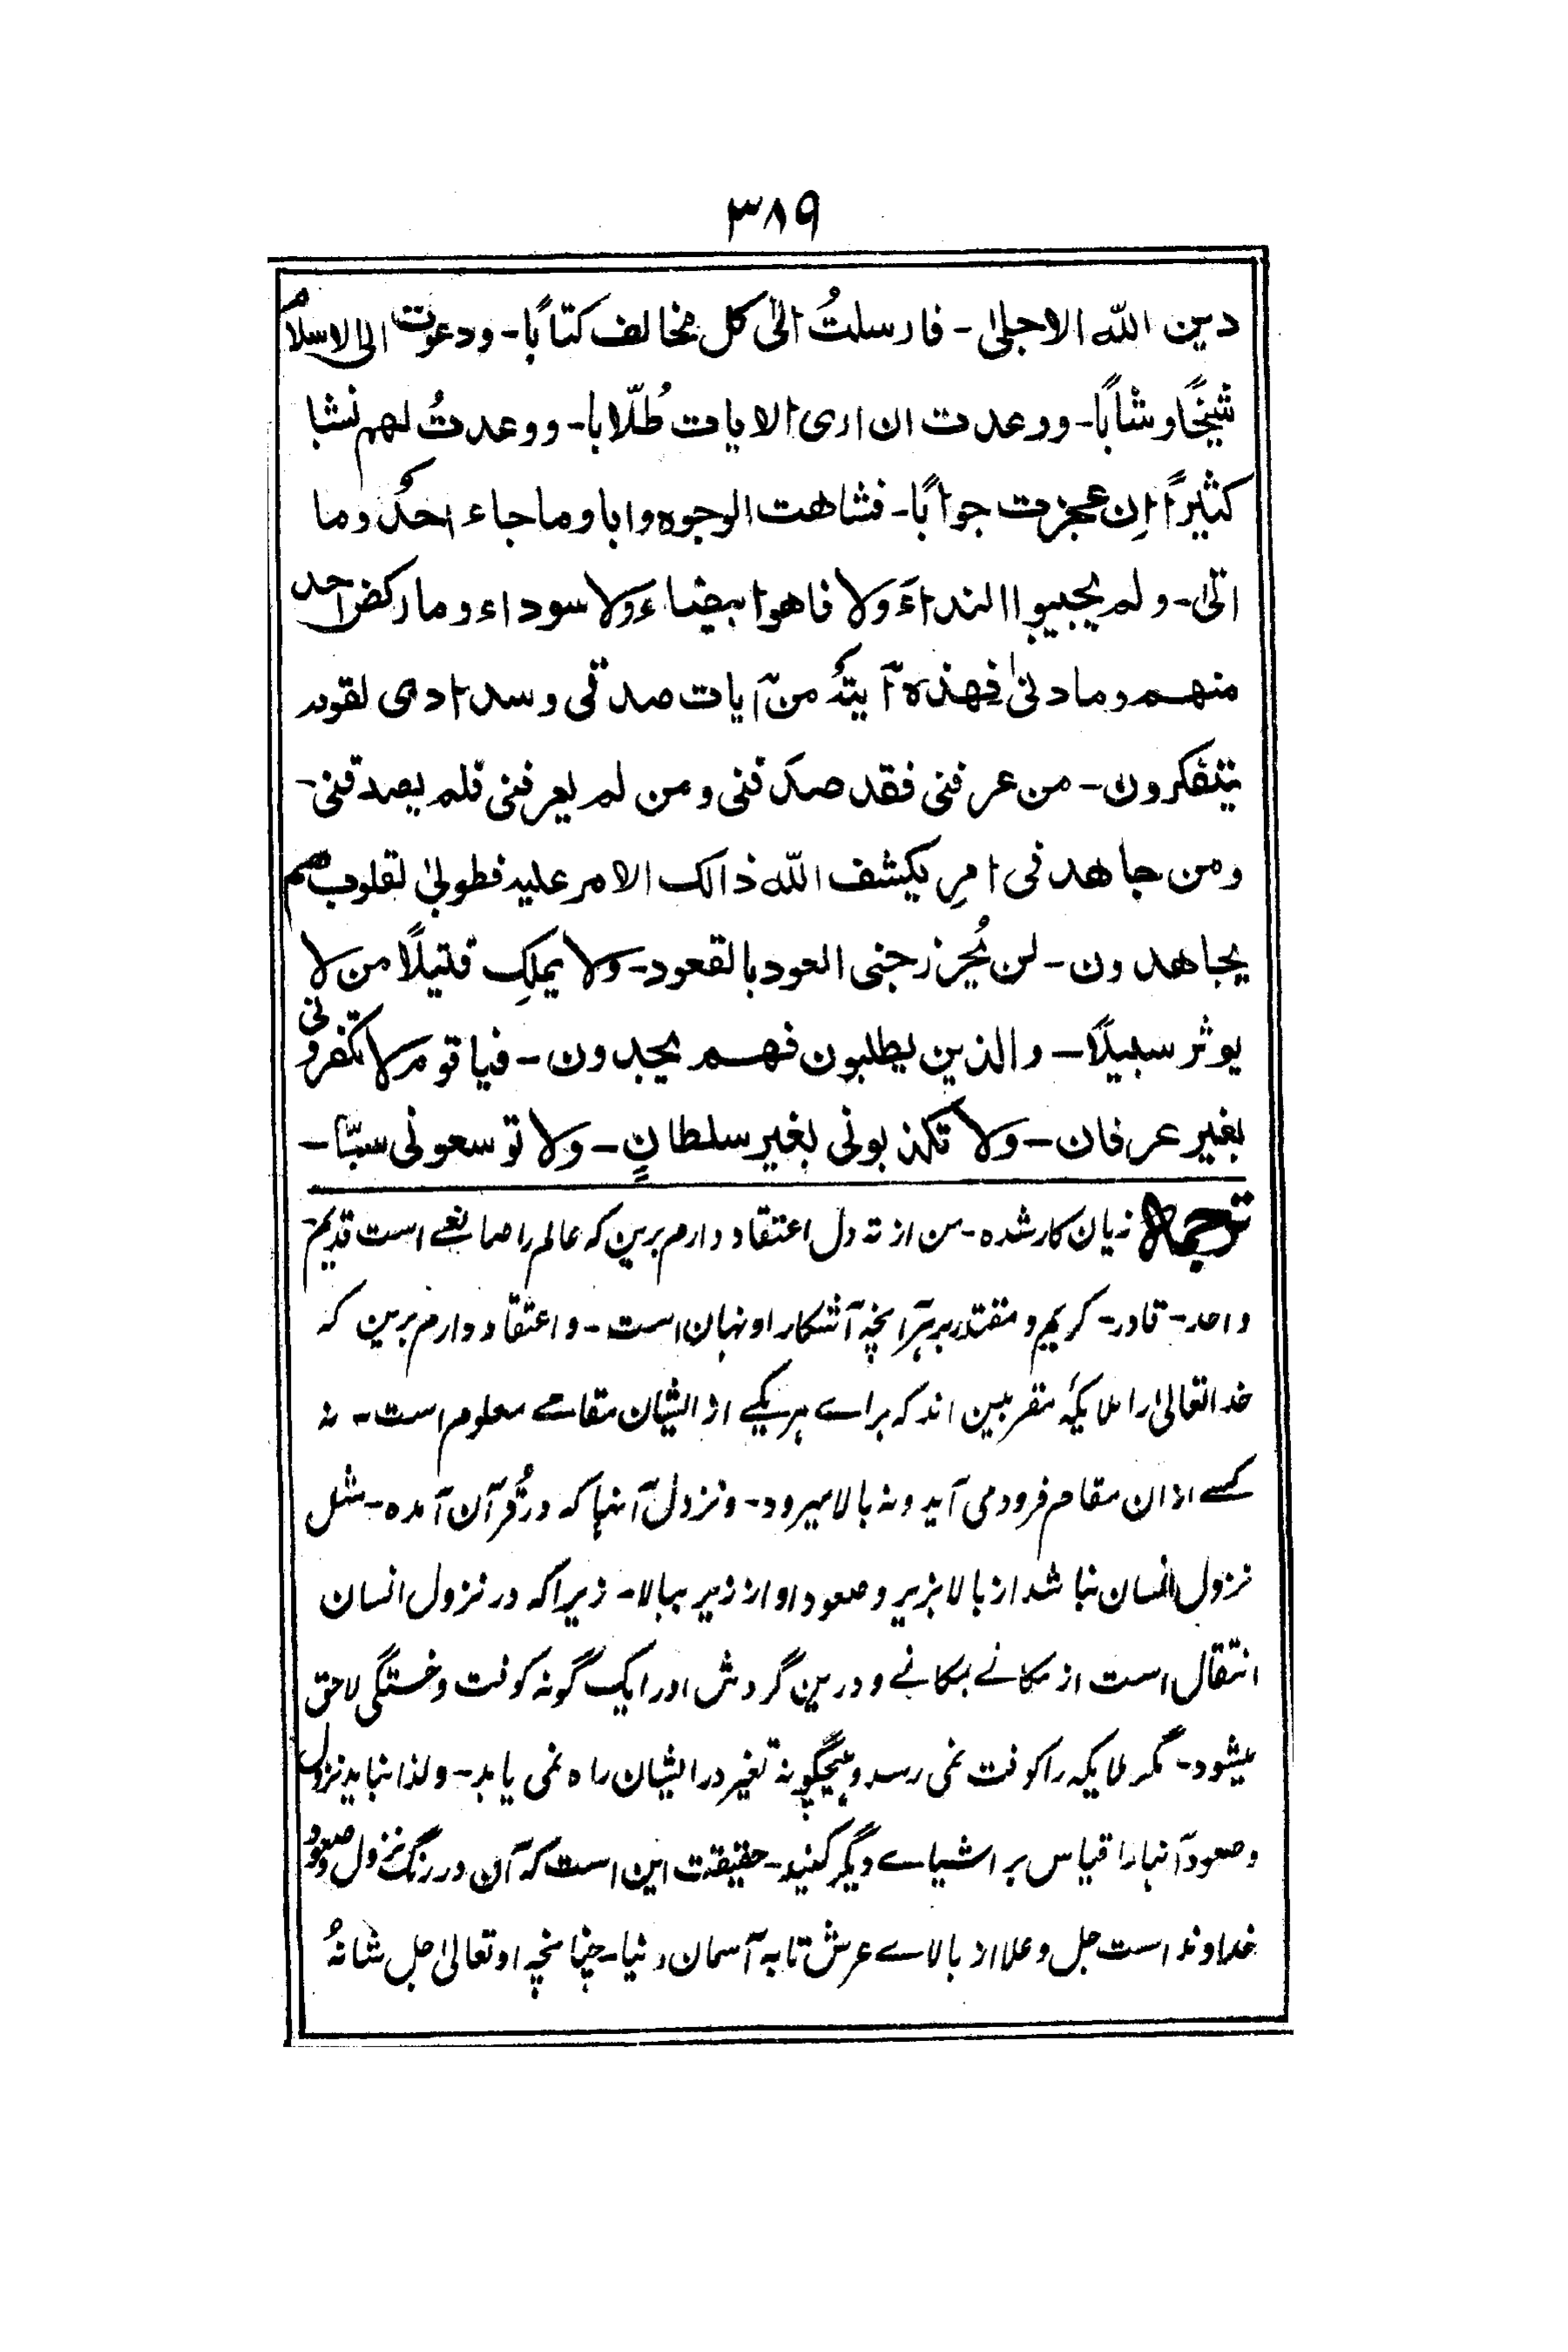 ۳۸۹
دین اللّٰہ الاجلیٰ۔ فارسلتُ الیٰ کل مخالف کتابًا۔ ودعوت الی الاسلام
شیخًا وشابًا۔ ووعدت ان اری الایات طُلّابا۔ ووعدتُ لھم نشبا
کثیرًا اِن عجزت جوابًا۔ فشاھت الوجوہ وابا وما جاء احدٌ وما
اتیٰ۔ ولم یجیبوا النداءَ ولا فاھوا ببیضاء ولا سوداء وما رکض احد
منھم وما دنیٰ فھذہ آیتہٌ من آیات صدقی وسدادی لقوم
یتفکرون۔ من عرفنی فقد صدّقنی ومن لم یعرفنی فلم یصدقنی۔
ومن جاھد فی امرِ یکشف اللّٰہ ذالک الامر علیہ فطوبیٰ لقلوب ھم
یجاھدون۔ لن یُحرز جنی العود بالقعود۔ ولا یملِک فتیلًا من لا
یوثر سبیلًا۔ والذین یطلبون فھم یجدون۔ فیا قوم لا تکفرونی
بغیر عرفان۔ ولا تکذبونی بغیر سلطانٍ۔ ولا توسعونی سبّا۔
ترجمہ زیان کار شدہ۔ من از تہ دل اعتقاد دارم برین کہ عالم را صانعے است قدیم
واحد۔ قادر۔ کریم و مقتدر بر ہر آنچہ آشکار او نہان است۔ و اعتقاد دارم برین کہ
خداتعالیٰ را ملایکۂ مقربین اند کہ براے ہر یکے از ایشان مقامے معلوم است۔ نہ
کسے ازان مقام فرود می آید و نہ بالا میرود۔ و نزول آنہا کہ در قُرآن آمدہ۔ مثل
نزول انسان نباشد از بالا بزیر و صعود او از زیر ببالا۔ زیراکہ در نزول انسان
انتقال است از مکانے بمکانے و درین گردش اورا یک گونہ کوفت و خستگی لاحق
میشود۔ مگر ملایکہ را کوفت نمی رسد و ہیچگونہ تغیر در ایشان راہ نمی یابد۔ ولذا نباید نزول
و صعود آنہا را قیاس بر اشیاے دیگر کنید۔ حقیقت این است کہ آن در رنگ نزول و صعود
خداوند است جل وعلا از بالاے عرش تا بہ آسمان دنیا۔ چنانچہ او تعالیٰ جل شانہُ